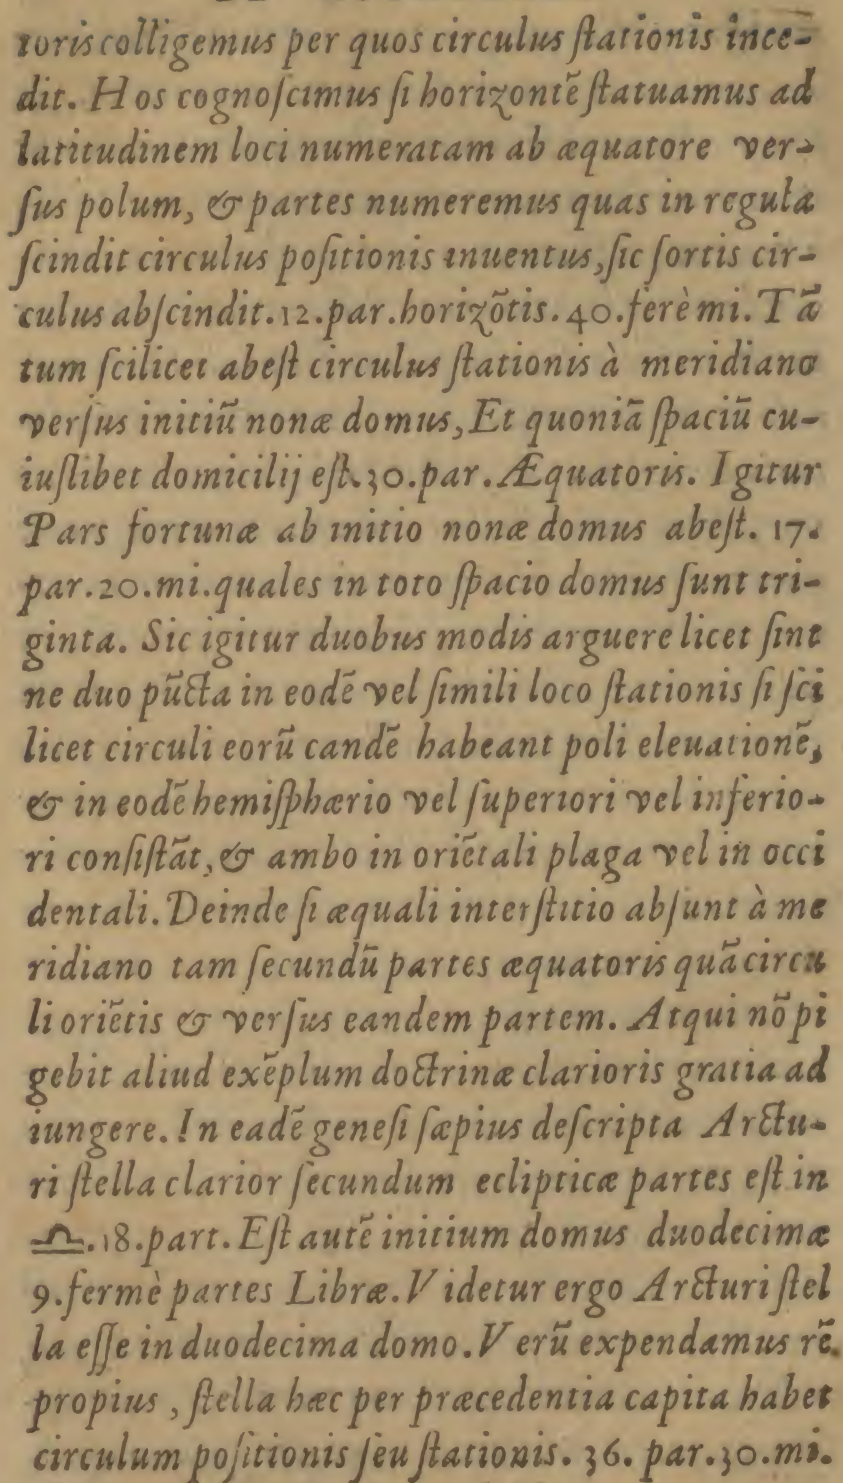 toris colligemus per quos circulus ſtationis ince-
dit. Hos cognoſcimus ſi horizontē ſtatuamus ad
latitudinem loci numeratam ab æquatore ver-
ſus polum, & partes numeremus quas in regula
ſcindit circulus poſitionis inuentus, ſic ſortis cir-
culus abſcindit. 12. par. horizōtis. 40. ferè mi. Tā
tum ſcilicet abeſt circulus ſtationis à meridiano
verſus initiū nonæ domus, Et quoniā ſpaciū cu-
iuſlibet domicilij eſt. 30. par. Æquatoris. Igitur
Pars fortunæ ab initio nonæ domus abeſt. 17.
par. 20. mi. quales in toto ſpacio domus ſunt tri-
ginta. Sic igitur duobus modis arguere licet ſint
ne duo pūcta in eodē vel ſimili loco ſtationis ſi ſci
licet circuli eorū eandē habeant poli eleuationē,
& in eodē hemiſphærio vel ſuperiori vel inferio-
ri conſiſtāt, & ambo in oriētali plaga vel in occi
dentali. Deinde ſi æquali interſtitio abſunt à me
ridiano tam ſecundū partes æquatoris quā circu
li oriētis & verſus eandem partem. Atqui nō pi
gebit aliud exēplum doctrinæ clarioris gratia ad
iungere. In eadē geneſi ſæpius deſcripta Arctu-
ri ſtella clarior ſecundum eclipticæ partes eſt in
♎. 18. part. Eſt autē initium domus duodecimæ
9. fermè partes Libræ. Videtur ergo Arcturi ſtel
la eſſe in duodecima domo. Verū expendamus rē.
propius, ſtella hæc per præcedentia capita habet
circulum poſitionis ſeu ſtationis. 36. par. 30. mi.